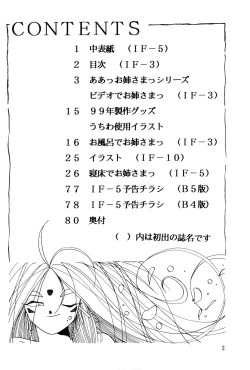 CONTENTS
1 中表紙 （ＩＦ－５）
2 目次 （ＩＦ－３）
3 ああっお姉さまっシリーズ
ビデオでお姉さまっ （ＩＦ－３）
15 ９９年製作グッズ
うちわ使用イラスト
16 お風呂でお姉さまっ （ＩＦ－３）
25 イラスト （ＩＦ－１０）
26 寝床でお姉さまっ （ＩＦ－５）
77 ＩＦ－５予告チラシ （Ｂ５版）
78 ＩＦ－５予告チラシ （Ｂ４版）
80 奥付
（ ）内は初出の誌名です
2